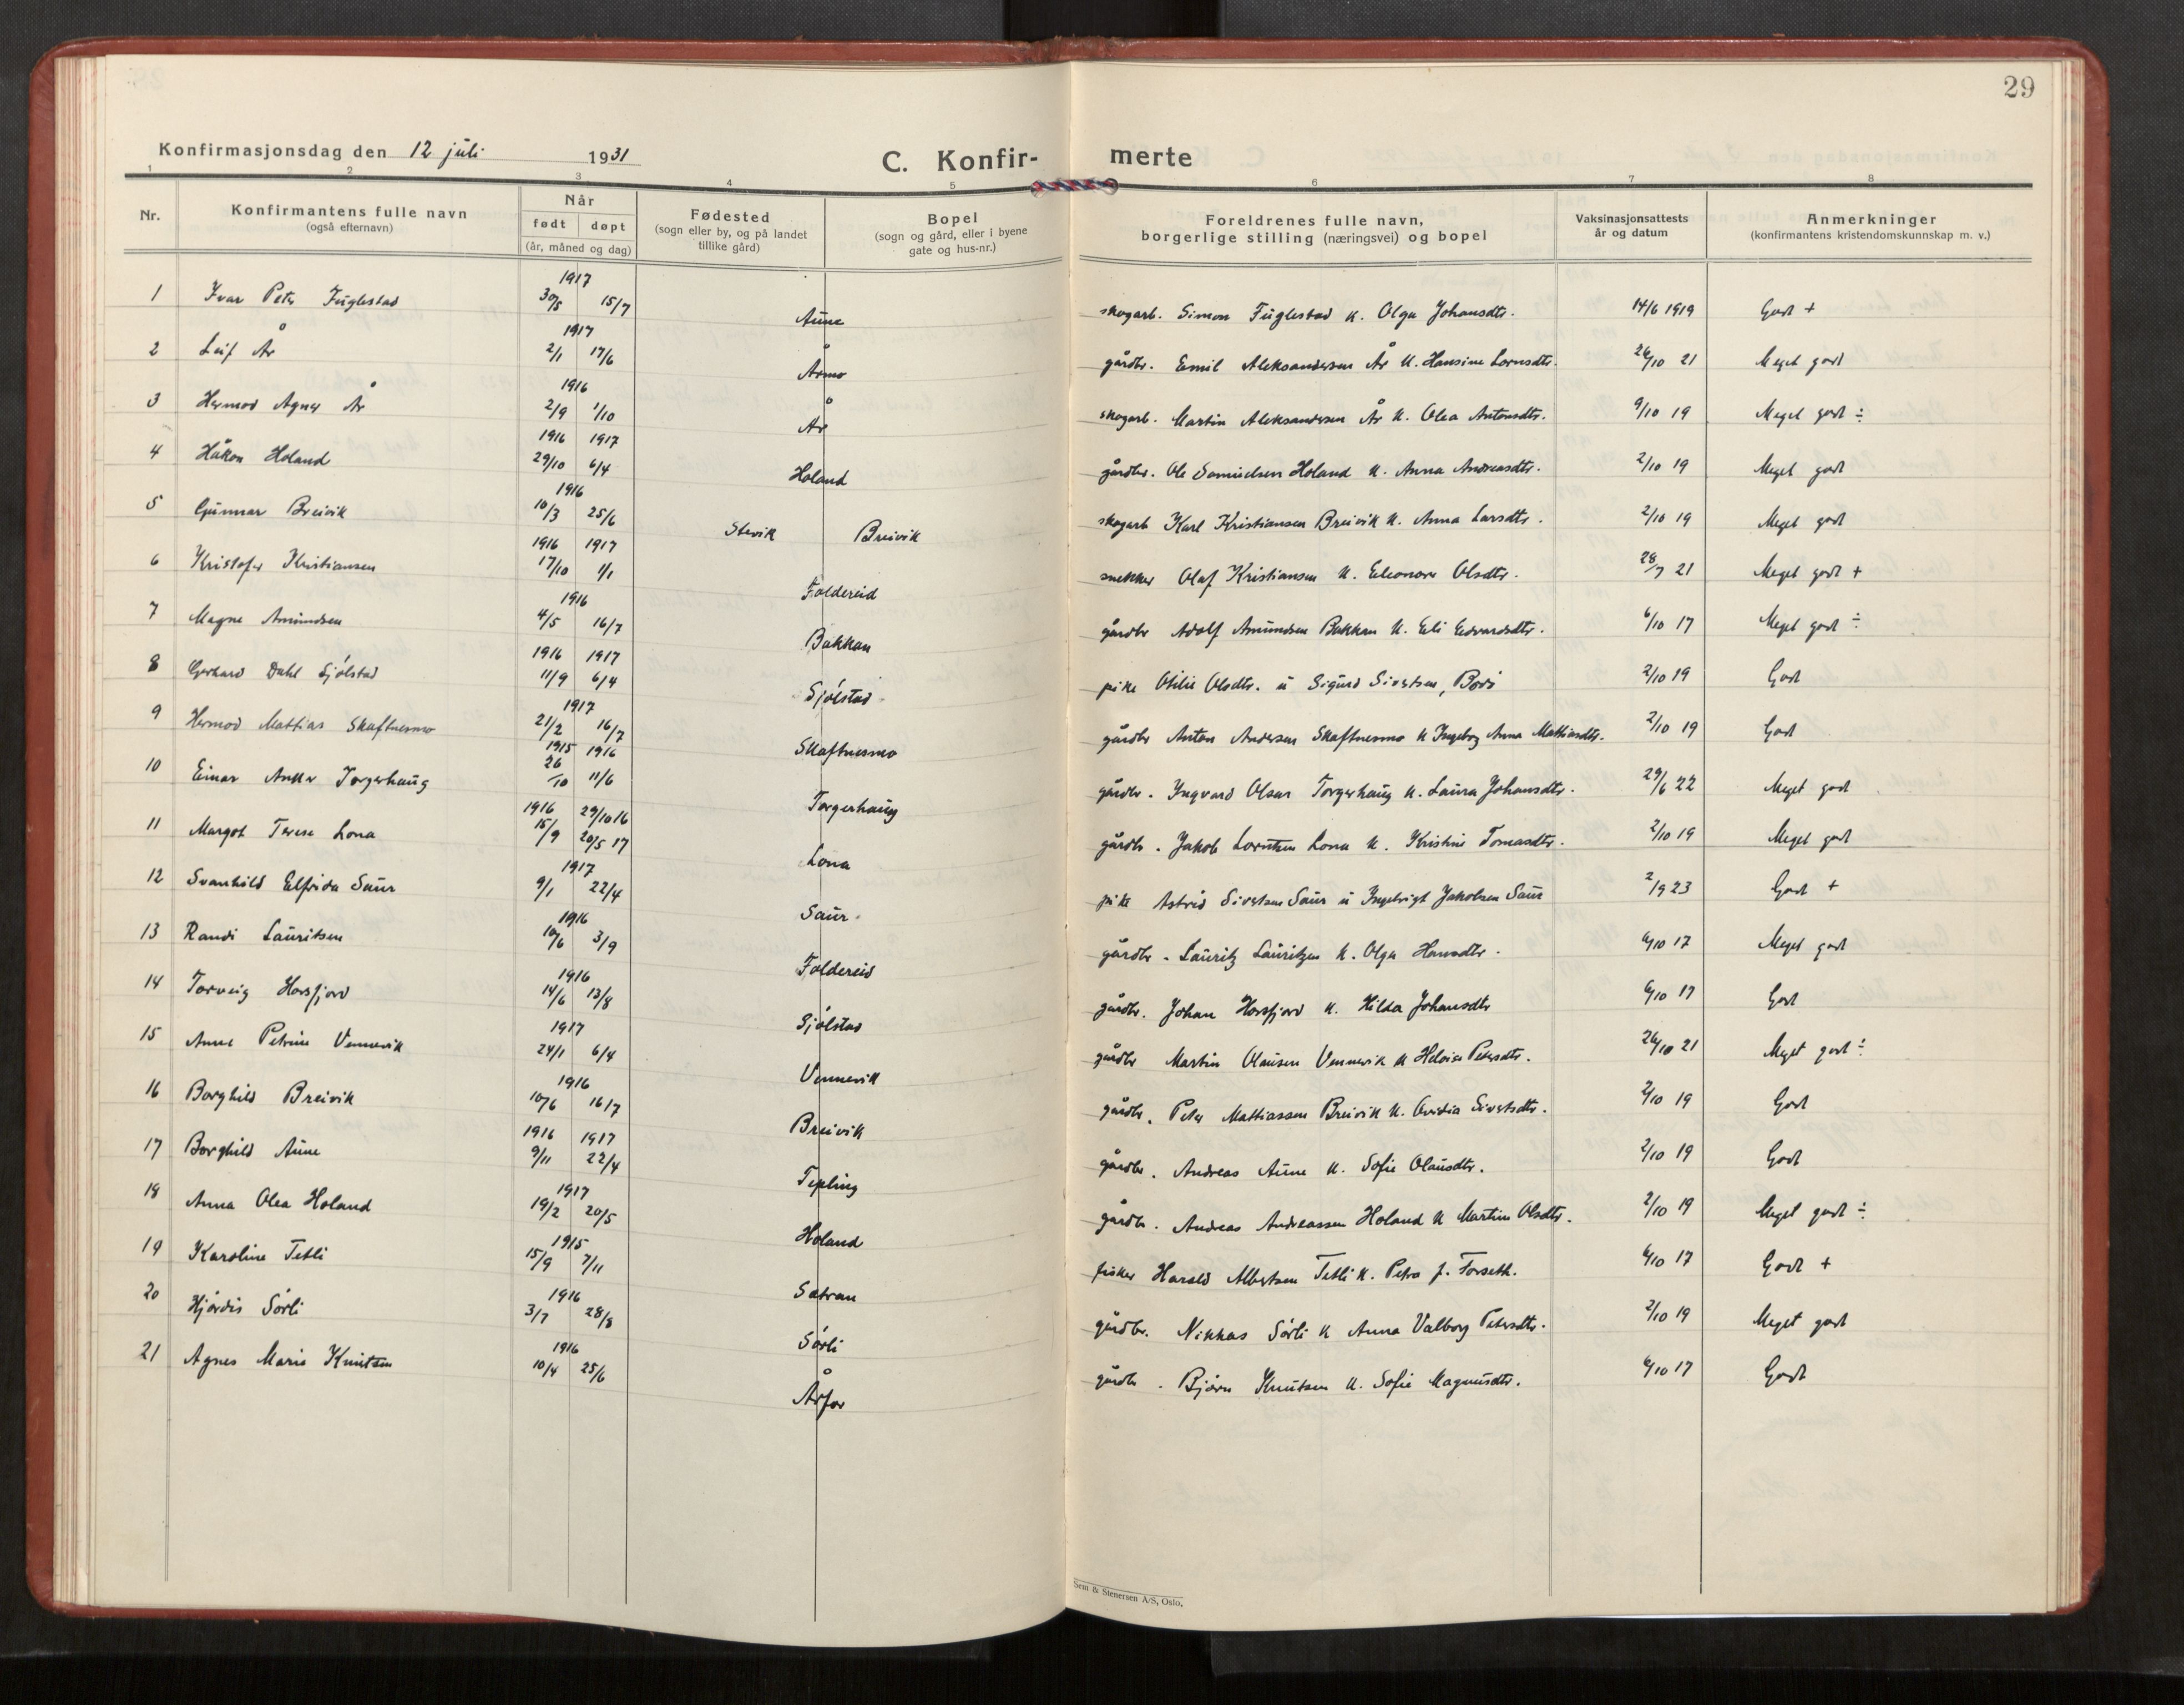 29
Konfirmasjonsdag den 12 juli 1931
C. Konfir- merte
1 2 3 4 5 6 7 8
Nr. Konfirmantens fulle navn (også efternavn) Når født døpt (år, måned og dag) Fødested (sogn eller by, og på landet tillike gård) Bopel (sogn og gård, eller i byene gate og hus-nr.) Foreldrenes fulle navn, borgerlige stilling (næringsvei) og bopel Vaksinasjonsattests år og datum Anmerkninger (konfirmantens kristendomskunnskap m. v.)
1 Ivar Peter Fuglestad 1917 30/5 15/7 Aune skogarb. Simon Fuglestad k. Olga Johansdtr. 14/6 1919 Godt +
2 Leif År 1917 2/1 17/6 Årmo gårdbr. Emil Aleksandersen År k. Hansine Lornsdtr. 26/10 21 Meget godt
3 Hermod Agner År 1916 2/9 1/10 År skogarb. Martin Aleksandersen År k. Olea Antonsdtr. 9/10 19 Meget godt ÷
4 Håkon Holand 1916 1917 29/10 6/4 Holand gårdbr. Ole Samuelsen Holand k. Anna Andreasdtr. 2/10 19 Meget godt
5 Gunnar Breivik 1916 10/3 25/6 Stevik Breivik skogarb Karl Kristiansen Breivik k. Anna Larsdtr. 2/10 19 Meget godt
6 Kristofer Kristiansen 1916 1917 17/10 1/1 Foldereid snekker Olaf Kristiansen k. Eleonore Olsdtr. 28/7 21 Meget godt +
7 Magne Amundsen 1916 4/5 16/7 Bakkan gårdbr Adolf Amundsen Bakkan k. Eli Edvardsdtr. 6/10 17 Meget godt ÷
8 Gerhard Dahl Sjölstad 1916 1917 11/9 6/4 Sjölstad pike Otilie Olsdtr. u Sigurd Sivertsen, 2/10 19 Godt
9 Hermod Mattias Skaftnesmo 1917 21/2 16/7 Skaftnesmo gårdbr Anton Andersen Skaftnesmo k Ingeborg Anna Mattiasdtr. 2/10 19 Godt
10 Einar Anker Torgerhaug 1915 1916 26/10 11/6 Torgerhaug gårdbr. Ingvard Olsen Torgerhaug k. Laura Johansdtr. 29/6 22 Meget godt
11 Margot Terese Lona 1916 15/9 29/10 16 20/5 17 Lona gårdbr. Jakob Lorntsen Lona k. Kristine Tomasdtr. 2/10 19 Meget godt
12 Svanhild Elfrida Saur 1917 9/1 22/4 Saur pike Astrid Sivertsen Saur u Ingebrigt Jakobsen Saur 2/9 23 Godt +
13 Randi Lauritsen 1916 10/6 3/9 Foldereid gårdbr. Lauritz Lauritzen k. Olga Hansdtr. 6/10 17 Meget godt
14 Torveig Horsfjord 1916 14/6 13/8 Sjölstad gårdbr. Johan Horsfjord k. Hilda Johansdtr 6/10 17 Godt
15 Anne Petrine Vennevik 1917 24/1 6/4 Vennevik gårdbr Martin Olausen Vennevik k Heloise Petersdtr. 26/10 21 Meget godt ÷
16 Borghild Breivik 1916 10/6 16/7 Breivik gårdbr. Peter Mattiassen Breivik k. Ovidia Sivertsdtr. 2/10 19 Godt
17 Borghild Aune 1916 1917 9/11 22/4 Tepling gårdbr. Andreas Aune k. Sofie Olausdtr. 2/10 19 Godt
18 Anna Olea Holand 1917 19/2 20/5 Holand gårdbr. Andreas Andreassen Holand k Martine Olsdtr. 2/10 19 Meget godt ÷
19 Karoline Tetli 1915 15/9 7/11 Satran fisker Harald Albertsen Tetli k. Petra f. Forseth. 6/10 17 Godt +
20 Hjördis Sörli 1916 3/7 28/8 Sörli gårdbr. Nikkas Sörli k Anna Valborg Petersdtr. 2/10 19 Meget godt
21 Agnes Marie Knutsen 1916 10/4 25/6 Årfor gårdbr. Björn Knutsen k. Sofie Magnusdtr. 6/10 17 Godt
Sem & Stenersen A/S, Oslo.